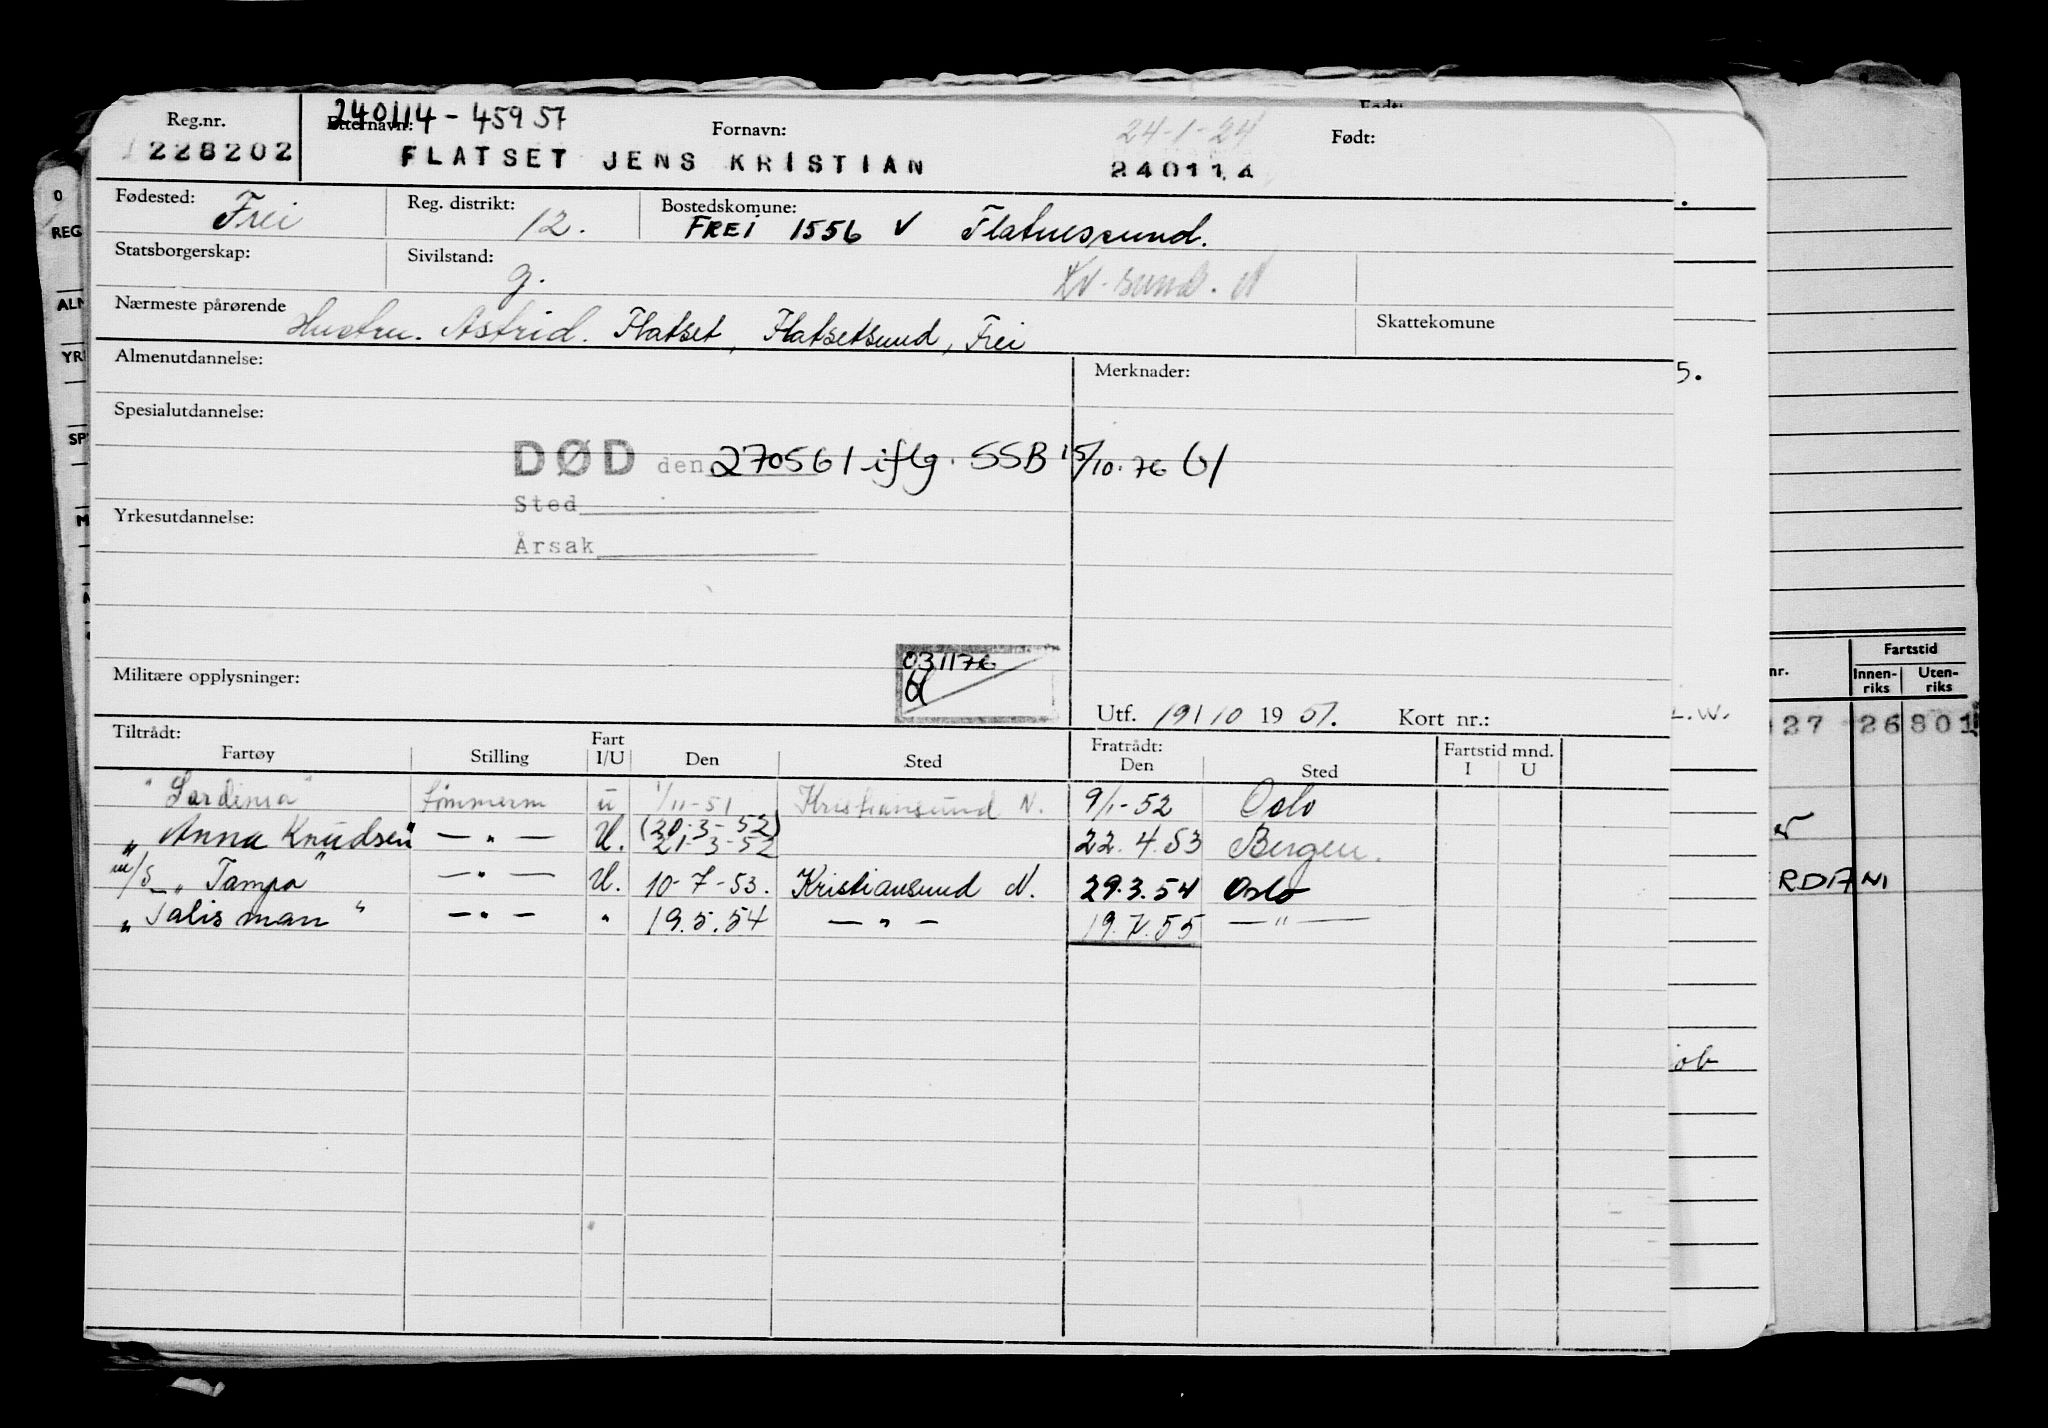 Reg.nr. 240114-45957 Etternavn: Fornavn: 24-1-24 Født:
1228202 FLATSET JENS KRISTIAN 240114
Fødested: Frei Reg. distrikt: 12. Bostedskomune: FREI 1556 V
Statsborgerskap: Sivilstand: g. Kr. sund. N
Nærmeste pårørende Hustru. Astrid. Flatset, Flatsetsund, Frei Skattekomune
Almenutdannelse: Merknader:
Spesialutdannelse:
DØD den 270561 iflg. SSB 15/10.76
Sted
Yrkesutdannelse:
Årsak
031176
Militære opplysninger:
Utf. 19/10 1951. Kort nr.:
Tiltrådt: Fratrådt: Fartstid mnd.
Fartøy Stilling Fart I/U Den Sted Den Sted I U
"Sardinia" tømmerm u 1/11-51 Kristiansund N. 9/1-52 Oslo
(20-3-52)
"Anna Knudsen" — " — U. 21-3-52 22.4.53 Bergen.
m/s "Tampa" — " — U. 10-7-53. Kristiansund N. 29.3.54 Oslo
"Talisman" — " — " 19.5.54 — " — 19.7.55 — " —
REG
YR
SP
5.
L.W.
nr. Fartstid
Innen-riks Uten-riks
27 26 801
RDIANI
ob